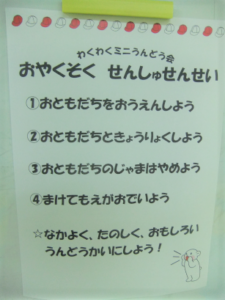 わくわくミニうんどう会
おやくそく せんしゅせんせい
①おともだちをおうえんしよう
②おともだちときょうりょくしよう
③おともだちのじゃまはやめよう
④まけてもえがおでいよう
☆なかよく、たのしく、おもしろい
うんどうかいにしよう！